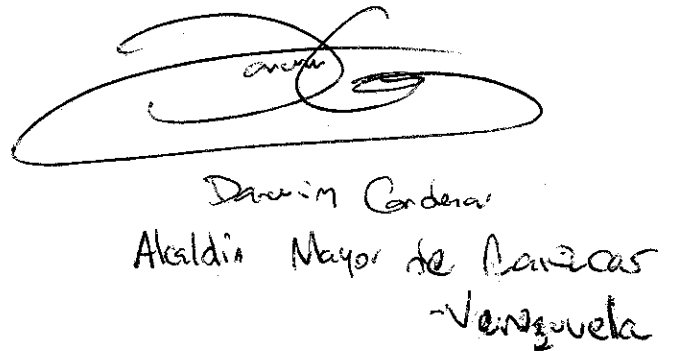 Darwin Cardenas
Alcaldia Mayor de Caracas
-Venezuela